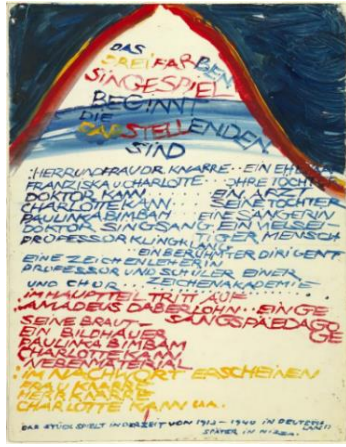 DAS
DREIFARBEN
SINGESPIEL
BEGINNT
DIE
DARSTELLENDEN
SIND
HERR UND FRAU DR. KNARRE.. EIN
FRANZISKA U CHARLOTTE.. IHRE
DOKTOR KANN EIN ARZT
CHARLOTTE KANN SEINE TOCHTER
PAULINKA BIMBAM EINE SÄNGERIN
DOKTOR SINGSANG EIN
PROFESSOR KLINGKLANG MENSCH
EIN BERÜHMTER DIRIGENT
EINE ZEICHENLEHRERIN
PROFESSOR UND SCHÜLER EINER
UND CHOR ZEICHENAKADEMIE
IM HAUPTTEIL TRITT AUF
AMADEUS DABERLOHN.. EIN GE
SEINE BRAUT SANGSPÄDAGO
EIN BILDHAUER GE
PAULINKA BIMBAM
CHARLOTTE KANN
IM NACHWORT ERSCHEINEN
FRAU KNARRE
HERR KNARRE
CHARLOTTE KANN U.A.
DAS STÜCK SPIELT IN DER ZEIT VON 1913 – 1940 IN DEUTSCH
LAND
SPÄTER IN NIZZA.